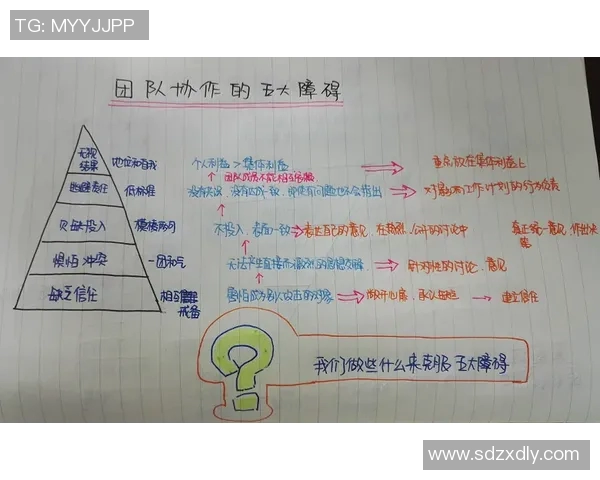 TG: MYYJJPP
团队协作的五大障碍
无视结果 地位和自我 个人利益>集体利益 重点放在集体利益上
团队成员不能相互
逃避责任 低标准 没有达成一致,即使有问题也不会指出 对影响工作计划的行为负责
欠缺投入 模棱两可 不投入,表面一致 表达自己的意见,在激烈、公开的讨论中 真正统一意见,作出决策
惧怕冲突 一团和气 无法产生直接而激烈的思想交锋 针对性的讨论、意见
缺乏信任 相互戒备 害怕成为别人攻击的对象 敞开心扉,承认缺点 建立信任
?
我们做些什么来克服五大障碍
www.sdzxdly.com